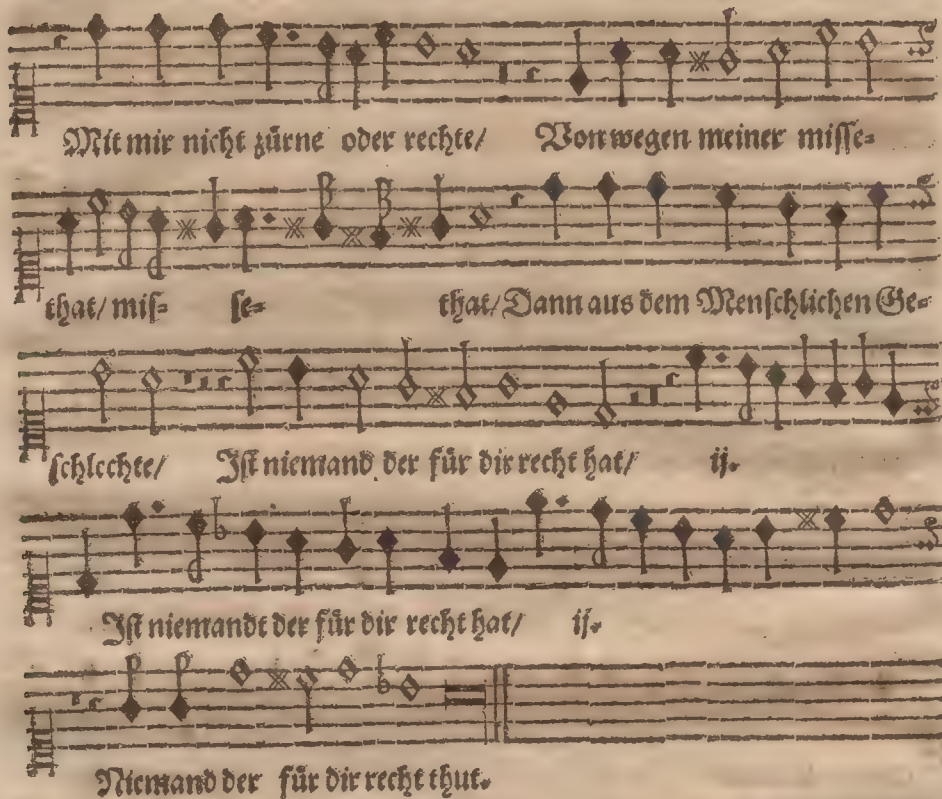 Mit mir nicht zürne oder rechte/ Von wegen meiner misse⸗
that/ mis⸗ se⸗ that/ Dann aus dem Menschlichen Ge⸗
schlechte/ Ist niemand der für dir recht hat/ ij.
Ist niemandt der für dir recht hat/ ij.
Niemand der für dir recht thut.